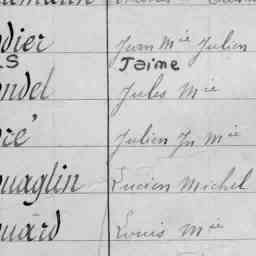 odier Jean Mie Julien
s Jaime
ondel Jules Mie
ré Julien Jn Mie
ouaglin Lucien Michel
ouard Louis Mie